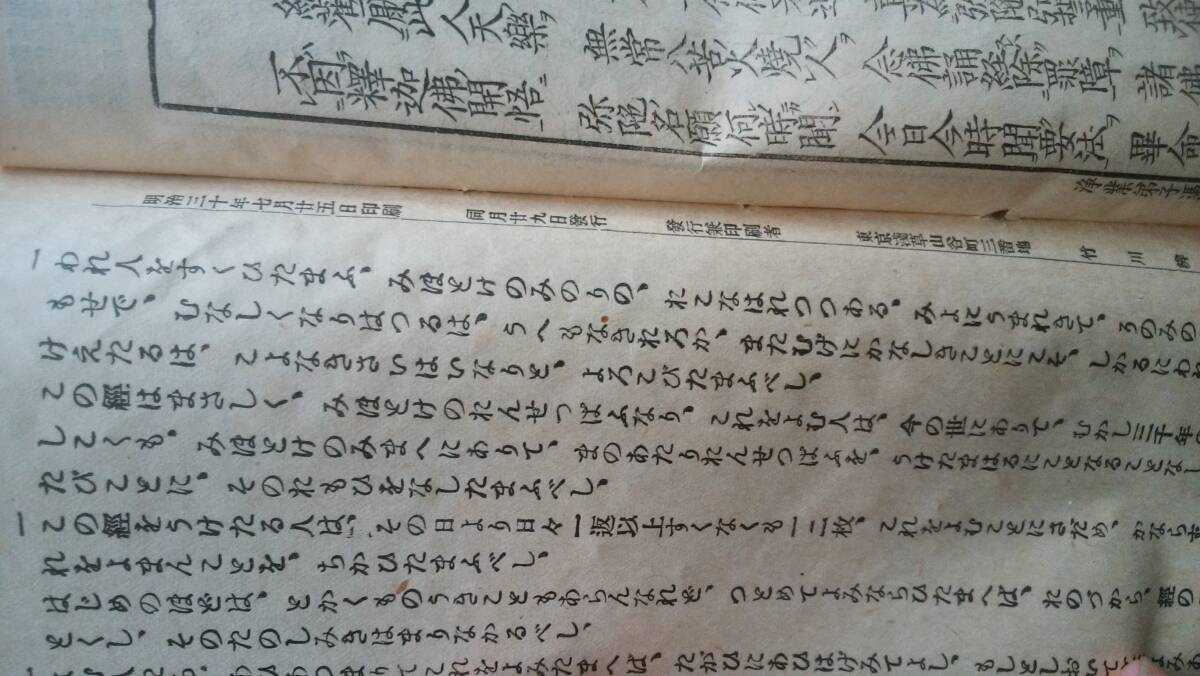 人天樂 無常八苦火燒人 念佛誦經除罪障 諸佛
不因釋迦佛開悟 弥陀名願何時聞 今日今時聞要法 畢命
淨業弟子
明治三十年七月廿五日印刷 同月廿九日發行 發行兼印刷者 東京淺草山谷町三番地 竹川
一われ人をすくひたまふ、みほとけのみのりの、れこなはれつつある、みよにうまれきて、そのみの
もせで、むなしくなりはつるは、うへもなきれろか、またむげにかなしきことにこそ、しかるにわれ
けえたるは、こよなきさいはいなりと、よろこびたまふべし、
この經はまさしく、みほとけのれんせつはふなり、これをよむ人は、今の世にありて、むかし三千年の
してくも、みほとけのみまへにありて、まのあたりれんせつはふを、うけたまはるにことなることなし
たびごとに、そのれもひをなしたまふべし、
一この經をうけたる人は、その日より日々一返以上すくなくも一二枚、これをよむことにさだめ、かならず
れをよまんことを、ちかひたまふべし、
はじめのほどは、とかくものうきこともあらんなれど、つとめてよみならひたまへば、れのづから、經の
とくし、そのたのしみきはまりなかるべし、
てこれをよみたまへば、たがひにあひはげみてよし、もしとしおいて